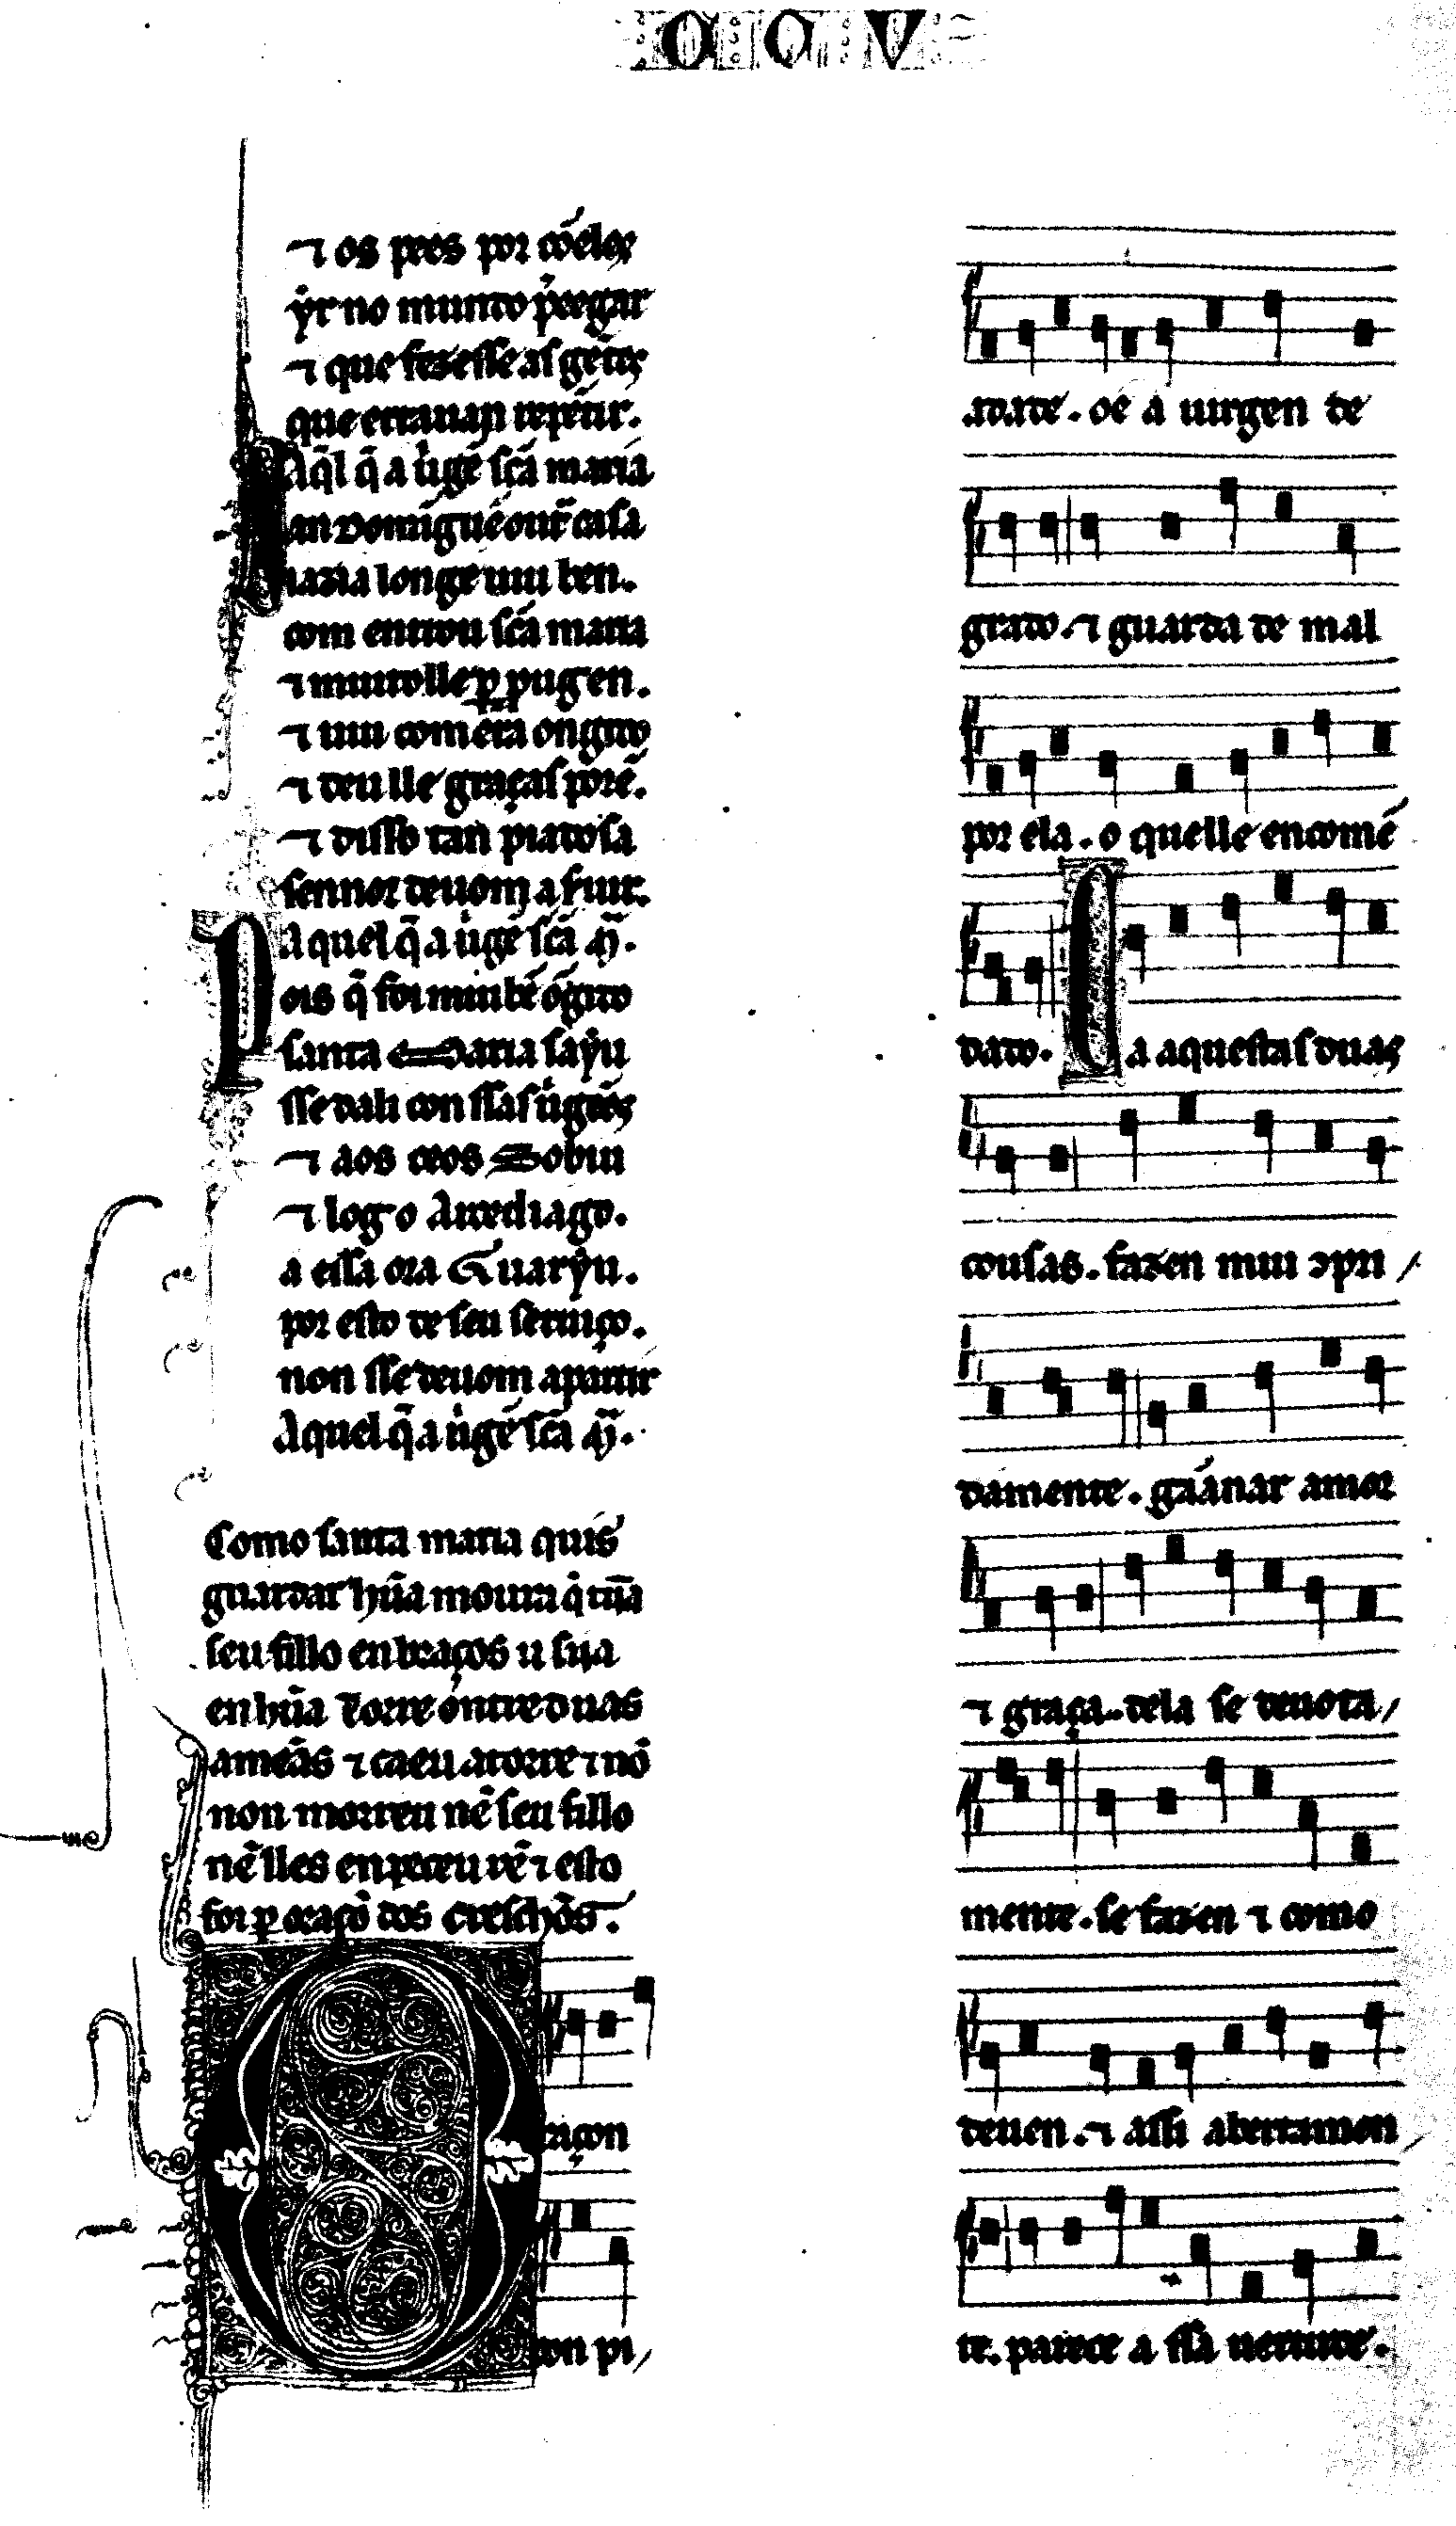 C C V
⁊ os pres por cõeloſ
yr no mundo p̃egar
⁊ que fezeſſe aſ gẽteſ
que erravan repẽtir.
Aq̃l q̃ a uirgẽ ſcã maria
San Domĩguẽ outͣ caſa
fazia longe muı ben.
com entrou ſcã maria
⁊ muıtolle ꝑ pugen.
⁊ muı com era ongıdo
⁊ deulle graçaſ porẽ.
⁊ diſſo tan pıadoſa
ſennor deuom a ſuir.
A quel q̃ a uigẽ ſcã M̃.
Pois q̃ foi muı bẽ õgıdo
ſanta Maria ſayu
ſſe dali con ſſaſ uigẽeſ
⁊ aos ceos Sobiu
⁊ log o Arcediago.
a eſſa ora Guaryu.
por eſto de ſeu ſeruiço.
non ſſe deuom apartir
Aquel q̃ a uigẽ ſcã M̃.
Como ſanta maria quis
guardar hũa moura q̇ tĩia
ſeu fillo en braços u ſiia
en hũa Torre ontre duas
ameãs ⁊ caeu a torre ⁊ nõ
non morreu nẽ ſeu fillo
nẽ lles enpeeceu rẽ ⁊ eſto
foi ꝑ oraçõ dos creſchõs.
Oraçon
con pi/
adade. oe a uirgen de
grado. ⁊ guarda de mal
por ela. o quelle encomẽ
dado. Ca aqueſtaſ duaſ
couſas. fazen muı ↄpri/
damente. gãanar amor
⁊ graça. dela ſe deuota/
mente. ſe fazen ⁊ como
deuen. ⁊ aſſi abertamen/
te. parece a ſſa uertude.